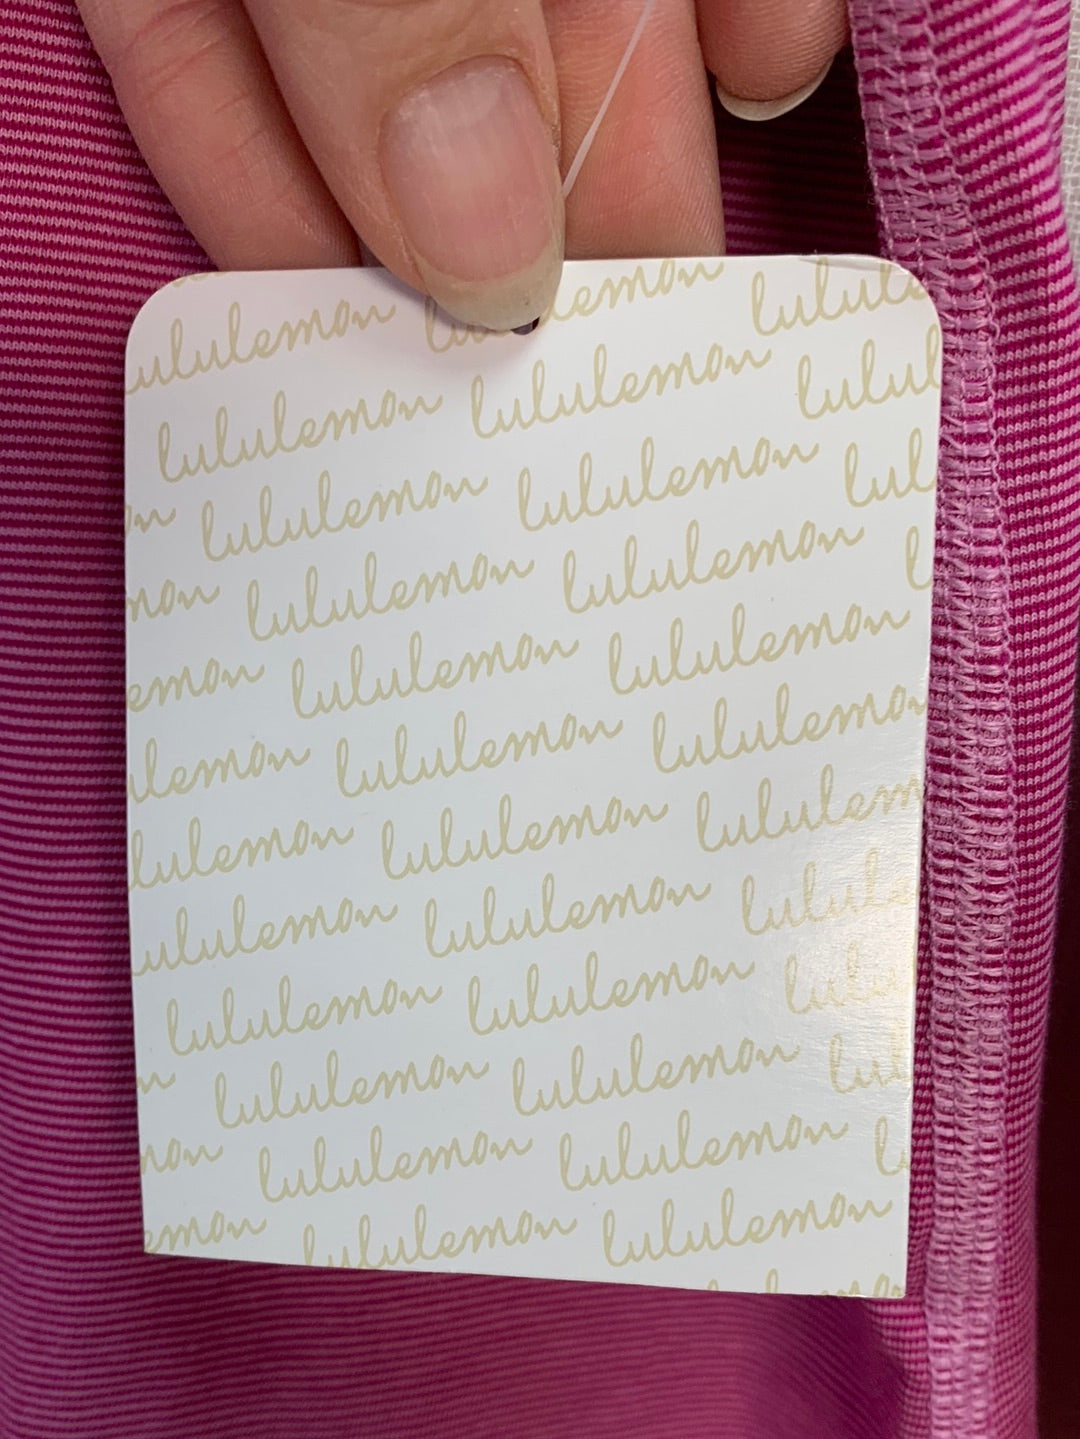 ululemon lululemon lulule
lululemon lululemon lulul
on lululemon lululemon lul
mon lululemon lululemon l
emon lululemon lululemon
ulemon lululemon lululemon
lulemon lululemon lululem
ululemon lululemon lulule
lululemon lululemon lulu
n lululemon lululemon lul
mon lululemon lululemon l
emon lululemon lululemon